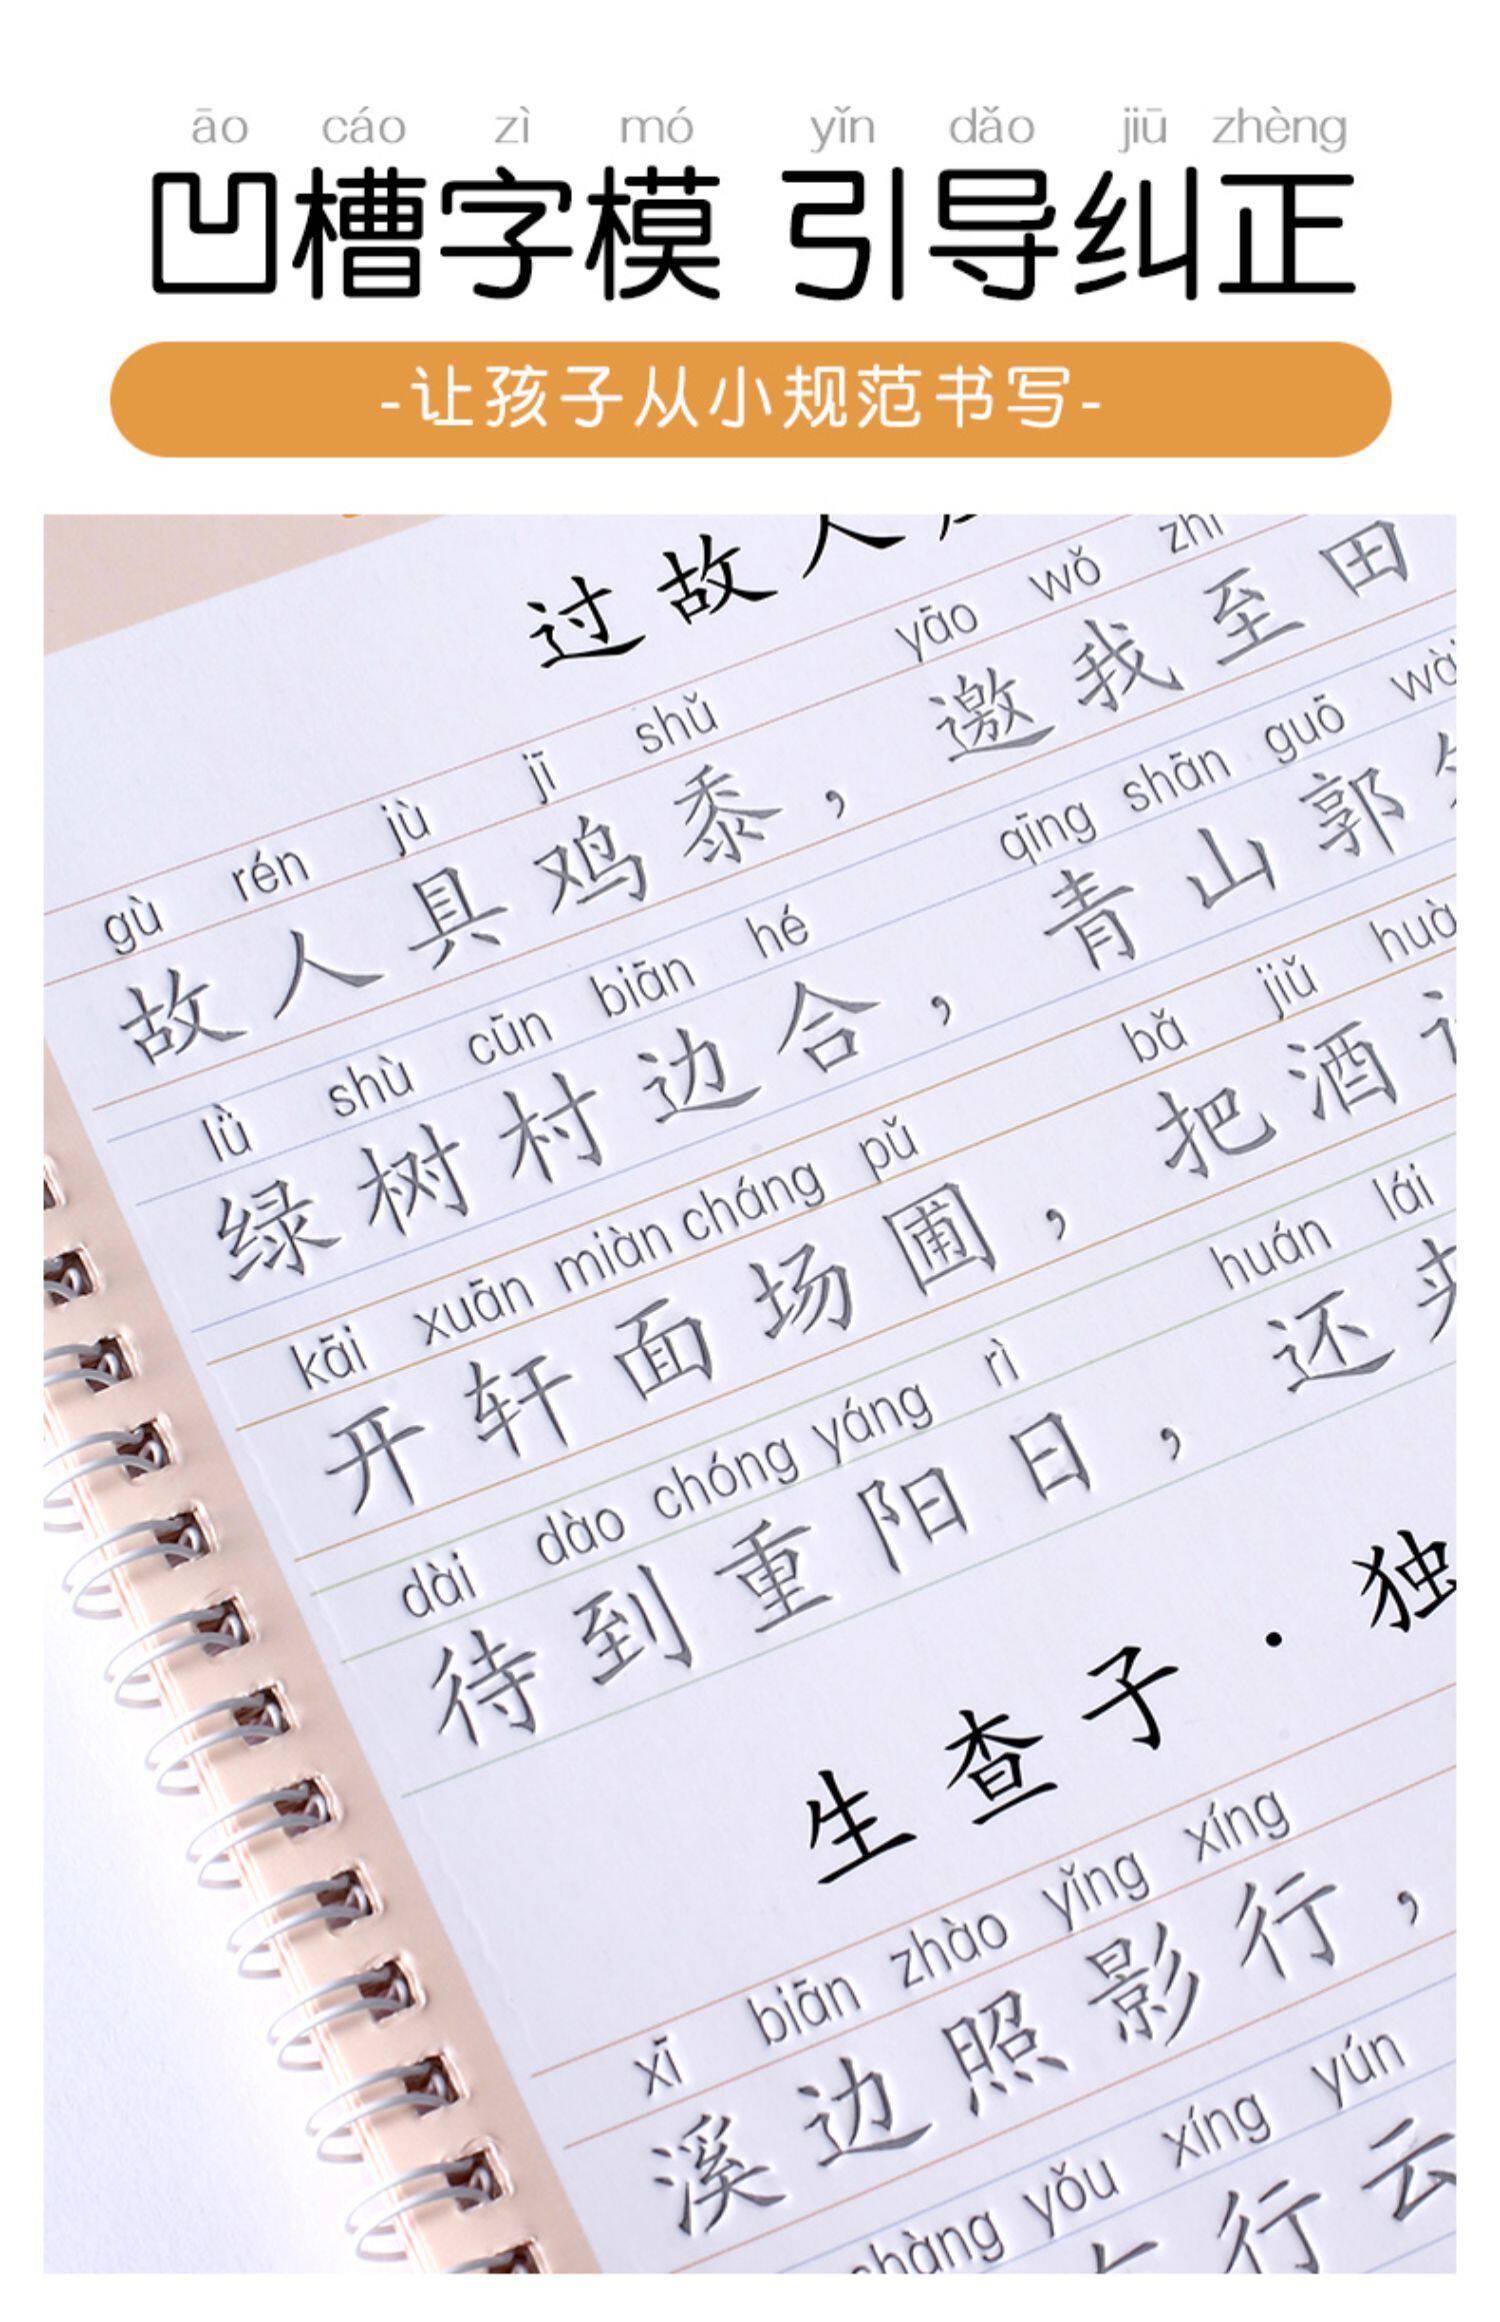 āo cáo zì mó yǐn dǎo jiū zhèng
凹槽字模 引导纠正
-让孩子从小规范书写-
过故人
gù rén jù jī shǔ yāo wǒ zhì
故人具鸡黍，邀我至田
lǜ shù cūn biān hé qīng shān guō wài
绿树村边合，青山郭
kāi xuān miàn cháng pǔ bǎ jiǔ huà
开轩面场圃，把酒
dài dào chóng yáng rì huán lái
待到重阳日，还来
生查子·独
xī biān zhào yǐng xíng
溪边照影行，
shàng yǒu xíng yún
行云